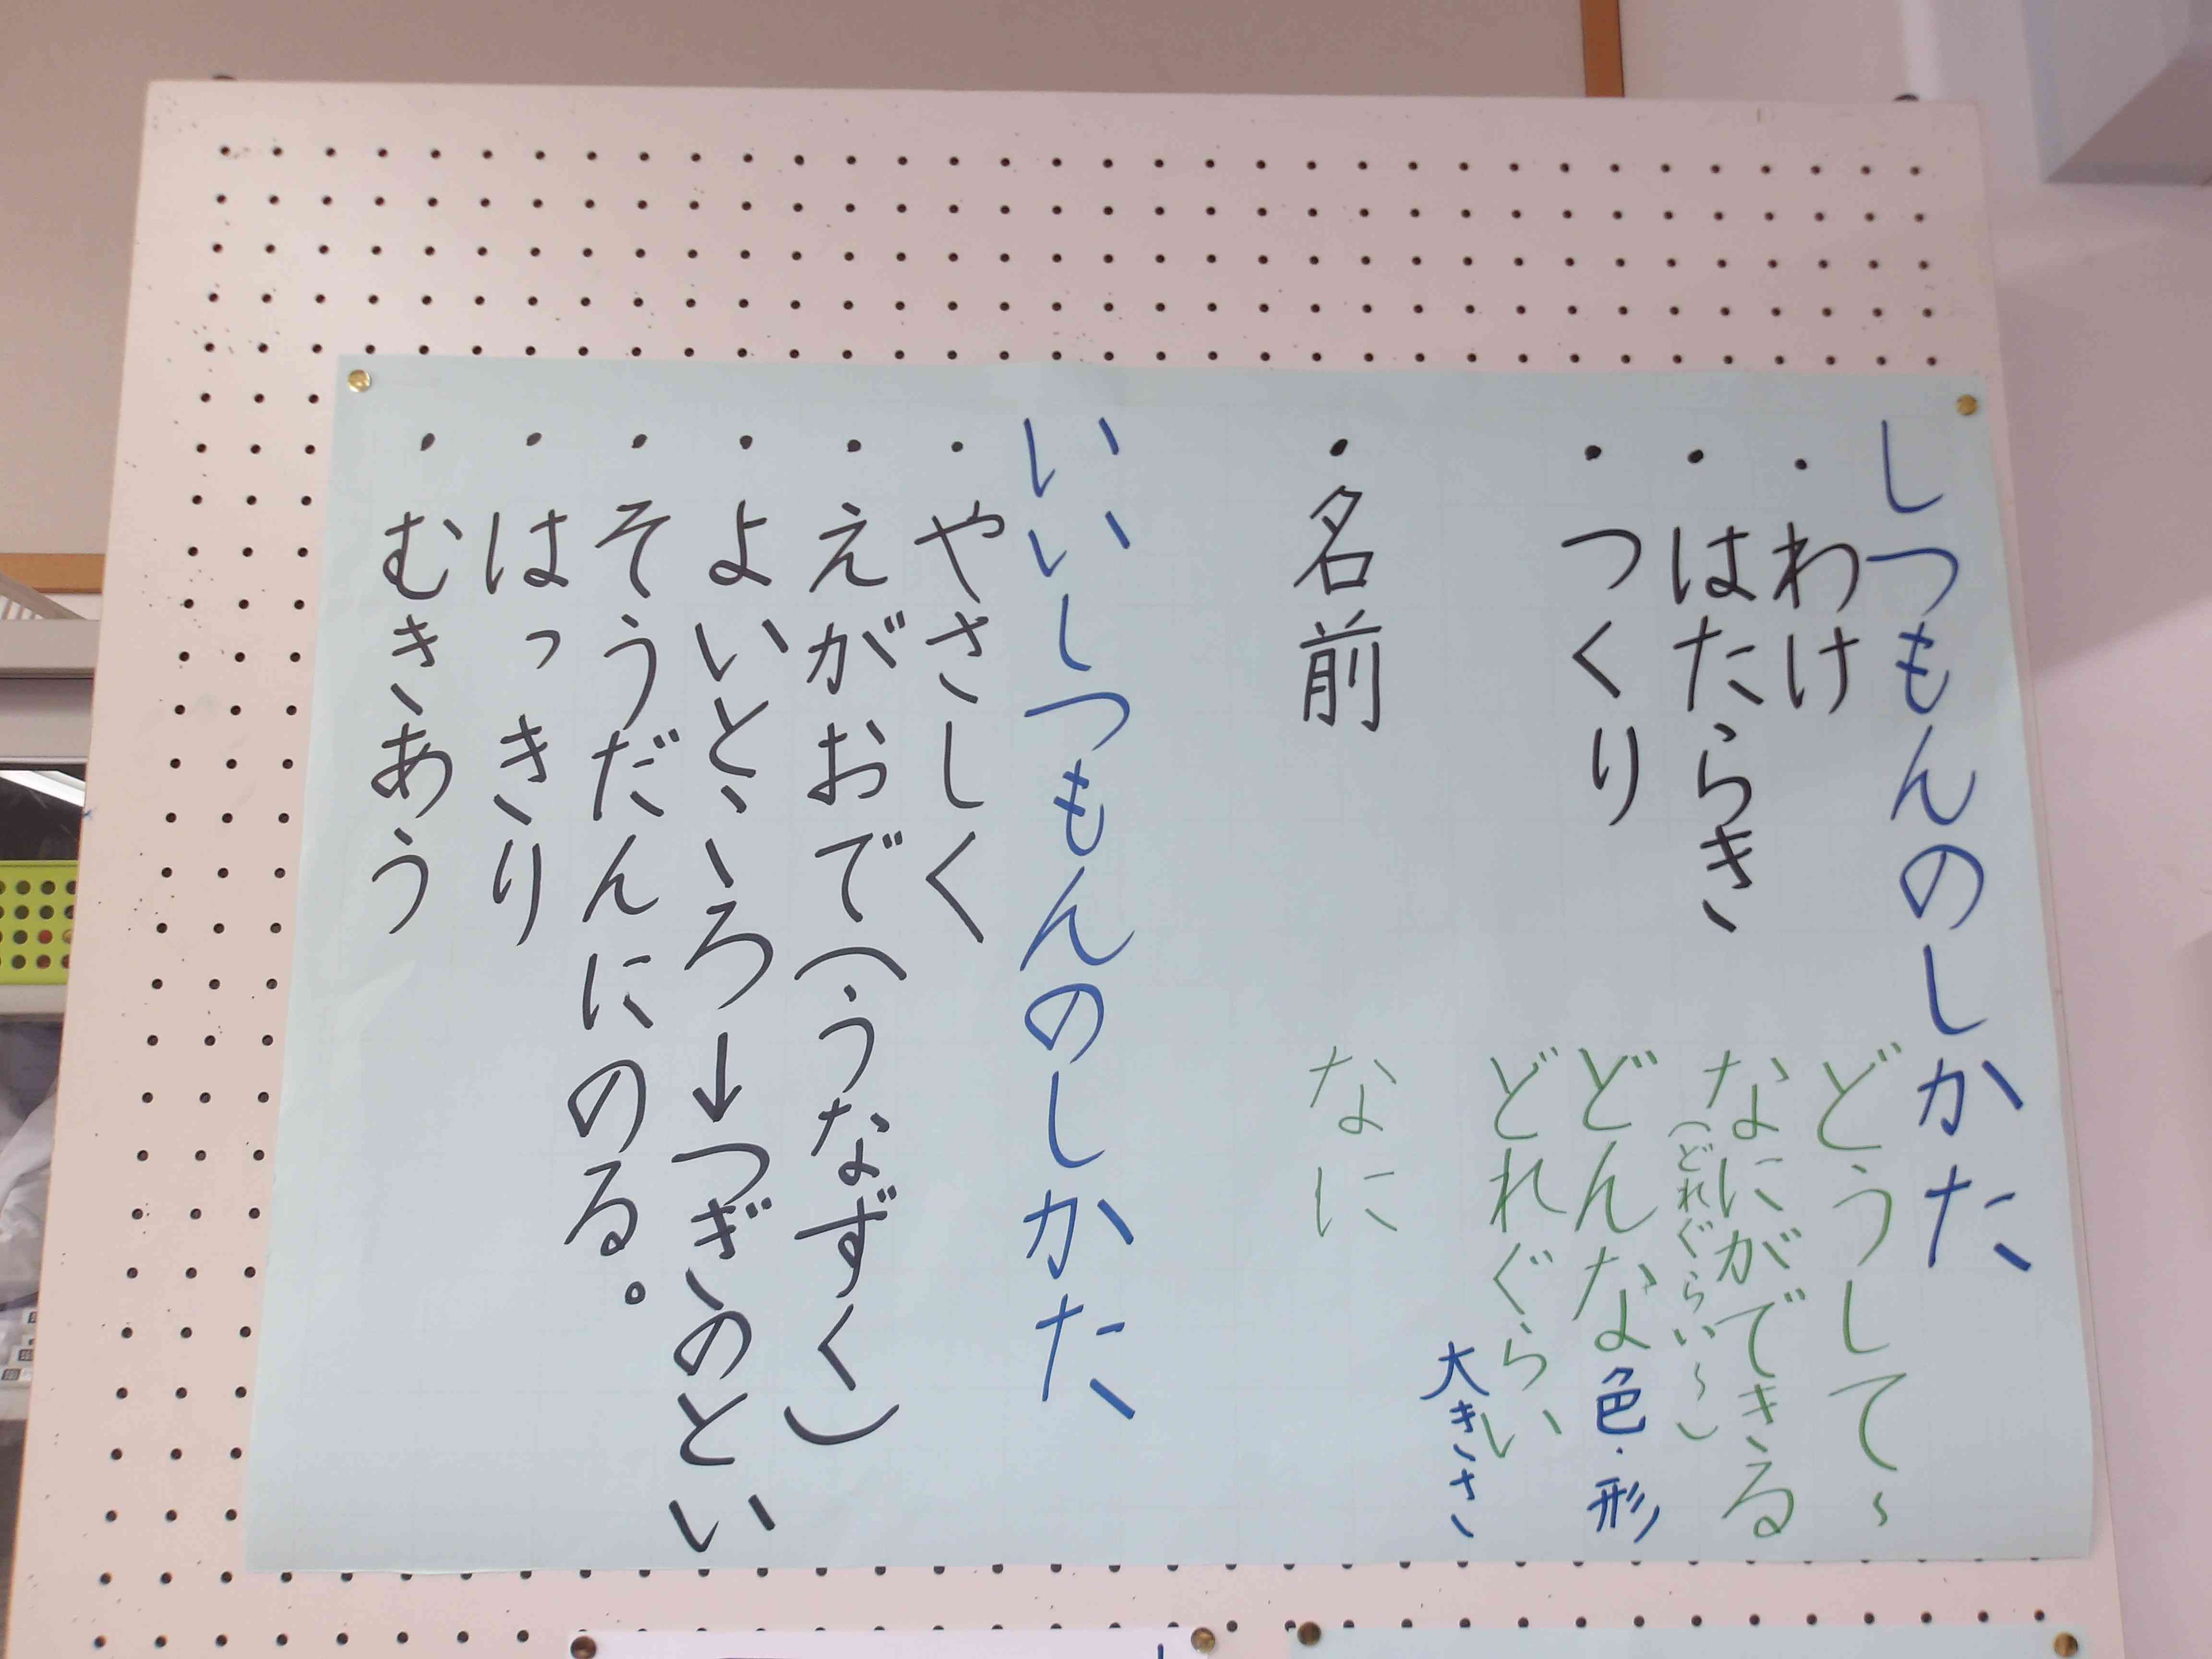 しつもんのしかた
・わけ どうして～
・はたらき なにができる
(どれぐらい～)
・つくり どんな色・形
どれぐらい
大きさ
・名前 なに
いいしつもんのしかた
・やさしく
・えがおで(うなずく)
・よいところ→つぎのとい
・そうだんにのる。
・はっきり
・むきあう